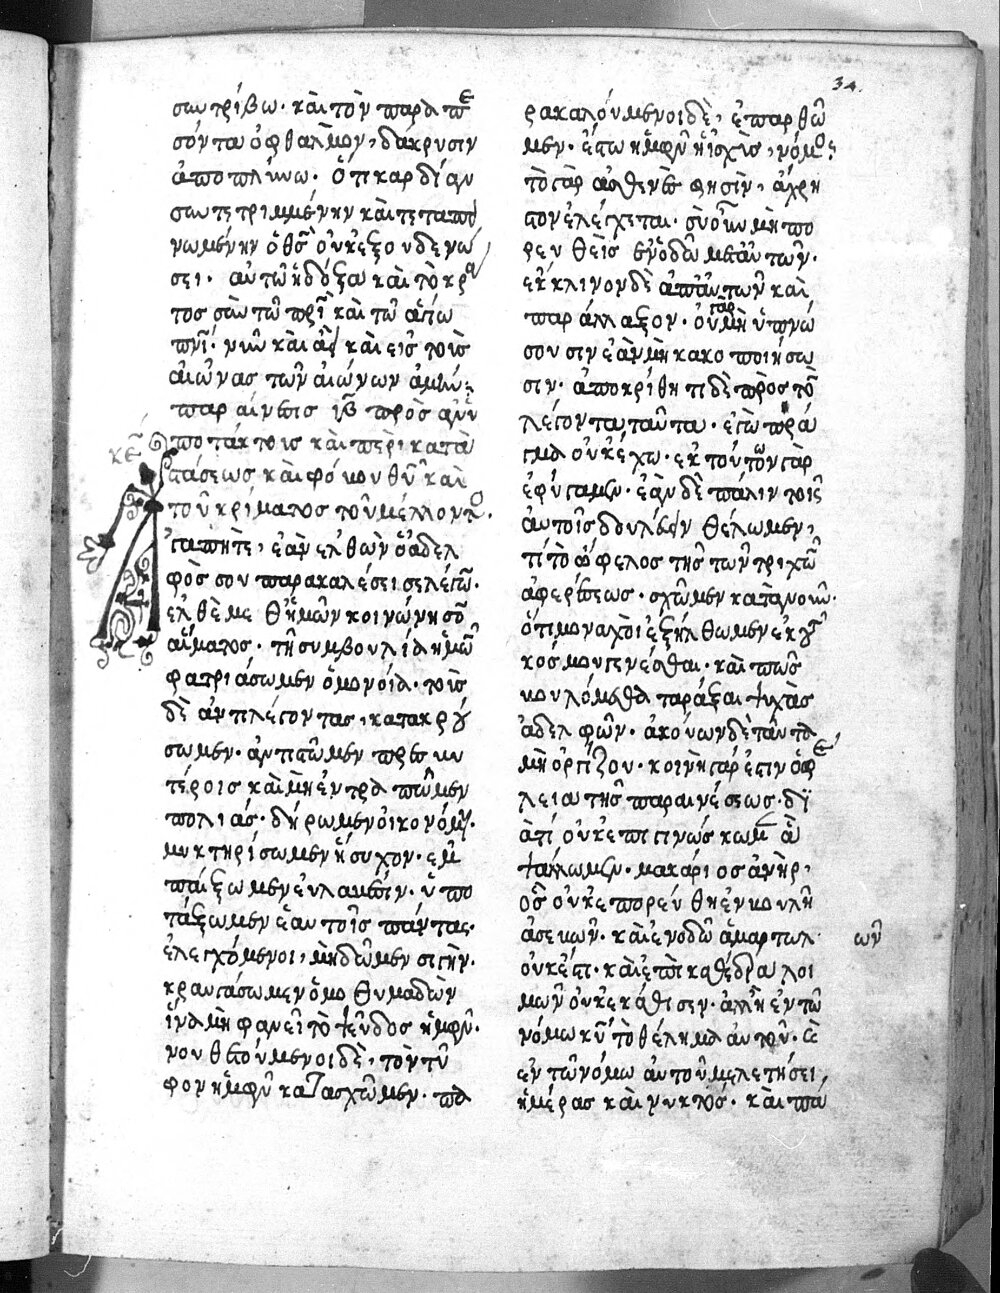 34.
συντρίβω· καὶ τὸν παρὰ πε
σόντα ὀφθαλμὸν, δάκρυσιν
ἀποπλύνω. ὅτι καρδίαν
συντετριμμένην καὶ τεταπει
νωμένην ὁ θς οὐκ ἐξουδενώ
σει· αὐτῶ ἡ δόξα καὶ τὸ κρά
τος σὺν τῶ πρὶ καὶ τῶ ἁγίω
πνι· νῦν καὶ ἀεὶ καὶ εἰς τοὺς
αἰῶνας τῶν αἰώνων ἀμήν:
παραίνεσις ιβ πρὸς ἀνυ
ποτάκτους καὶ περὶ κατα
στάσεως καὶ φόβου θυ καὶ
τοῦ κρίματος τοῦ μέλλοντο.
Ἀγαπητὲ, ἐὰν ἐλθὼν ὁ ἀδελ
φός σου παρακαλέσει σε λέγων·
ἐλθὲ μεθ' ἡμῶν κοινώνησον
αἵματος· τῆ συμβουλία ἡμῶν
φατριάσωμεν ὁμονοία· τοὺς
δὲ ἀντιλέγοντας, κατακρού
σωμεν· ἀντιστῶμεν πρεσβυ
τέροις καὶ μὴ ἐντραπῶμεν
πολιάς· δήρωμεν οἰκονόμον·
μυκτηρίσωμεν ἡσυχον· ἐμ
παίξωμεν εὐλαβεῖν· ὑπο
τάξωμεν ἑαυτοῖς πάντας·
ἐλεγχόμενοι, μὴ δῶμεν σιγὴν·
κραυγάσωμεν ὁμοθυμαδὼν
ἵνα μὴ φανεῖ τὸ ψεῦδος ἡμῶν·
νουθετούμενοι δὲ, τὸν τύ
φον ἡμῶν κατασχῶμεν· πα
ρακαλούμενοι δὲ, ἐπαρθῶ
μεν· ἔστω ἡμῶν ἡ ἰσχὺς, νόμος:
τὸ γὰρ ἀσθενὲς φησὶν, ἄχρη
στον ἐλέγχεται· σὺ οὖν μὴ πο
ρευθεὶς ἐν ὁδῶ μετ' αὐτῶν·
ἔκκλινον δὲ ἀπ' αὐτῶν καὶ
παράλλαξον· οὐ γὰρ μὴ ὑπνώ
σουσιν ἐὰν μὴ κακοποιήσω
σιν· ἀποκρίθητι δὲ πρὸς τὸν
λέγοντα ταῦτα· ἐγὼ πρά
γμα οὐκ ἔχω· ἐκ τούτων γὰρ
ἐφύγαμεν· ἐὰν δὲ πάλιν τοῖς
αὐτοῖς δουλεύειν θέλωμεν,
τί τὸ ὄφελος τῆς τῶν τριχῶν
ἀφερέσεως· σχῶμεν κατὰ νοῦν·
ὅτι μοναχοὶ ἐξήλθωμεν ἐκ τοῦ
κόσμου γενέσθαι· καὶ πῶς
βουλόμεθα ταράξαι ψυχὰς
ἀδελφῶν· ἀκούων δὲ ταῦτα
μὴ ὀργίζου· κοινὴ γάρ ἐστιν ὀφέ
λεια τῆς παραινέσεως· δι
ατί οὐκ ἐπιγινώσκωμεν ἃ
ψάλλωμεν· μακάριος ἀνὴρ,
ὃς οὐκ ἐπορεύθη ἐν βουλῆ
ἀσεβῶν· καὶ ἐν ὁδῶ ἁμαρτωλ ῶν
οὐκ ἔστη· καὶ ἐπὶ καθέδρα λοι
μῶν οὐκ ἐκάθισεν· ἀλλ' ἢ ἐν τῶ
νόμω κυ τὸ θέλημα αὐτοῦ· καὶ
ἐν τῶ νόμω αὐτοῦ μελετήσει
ἡμέρας καὶ νυκτός· καὶ πά